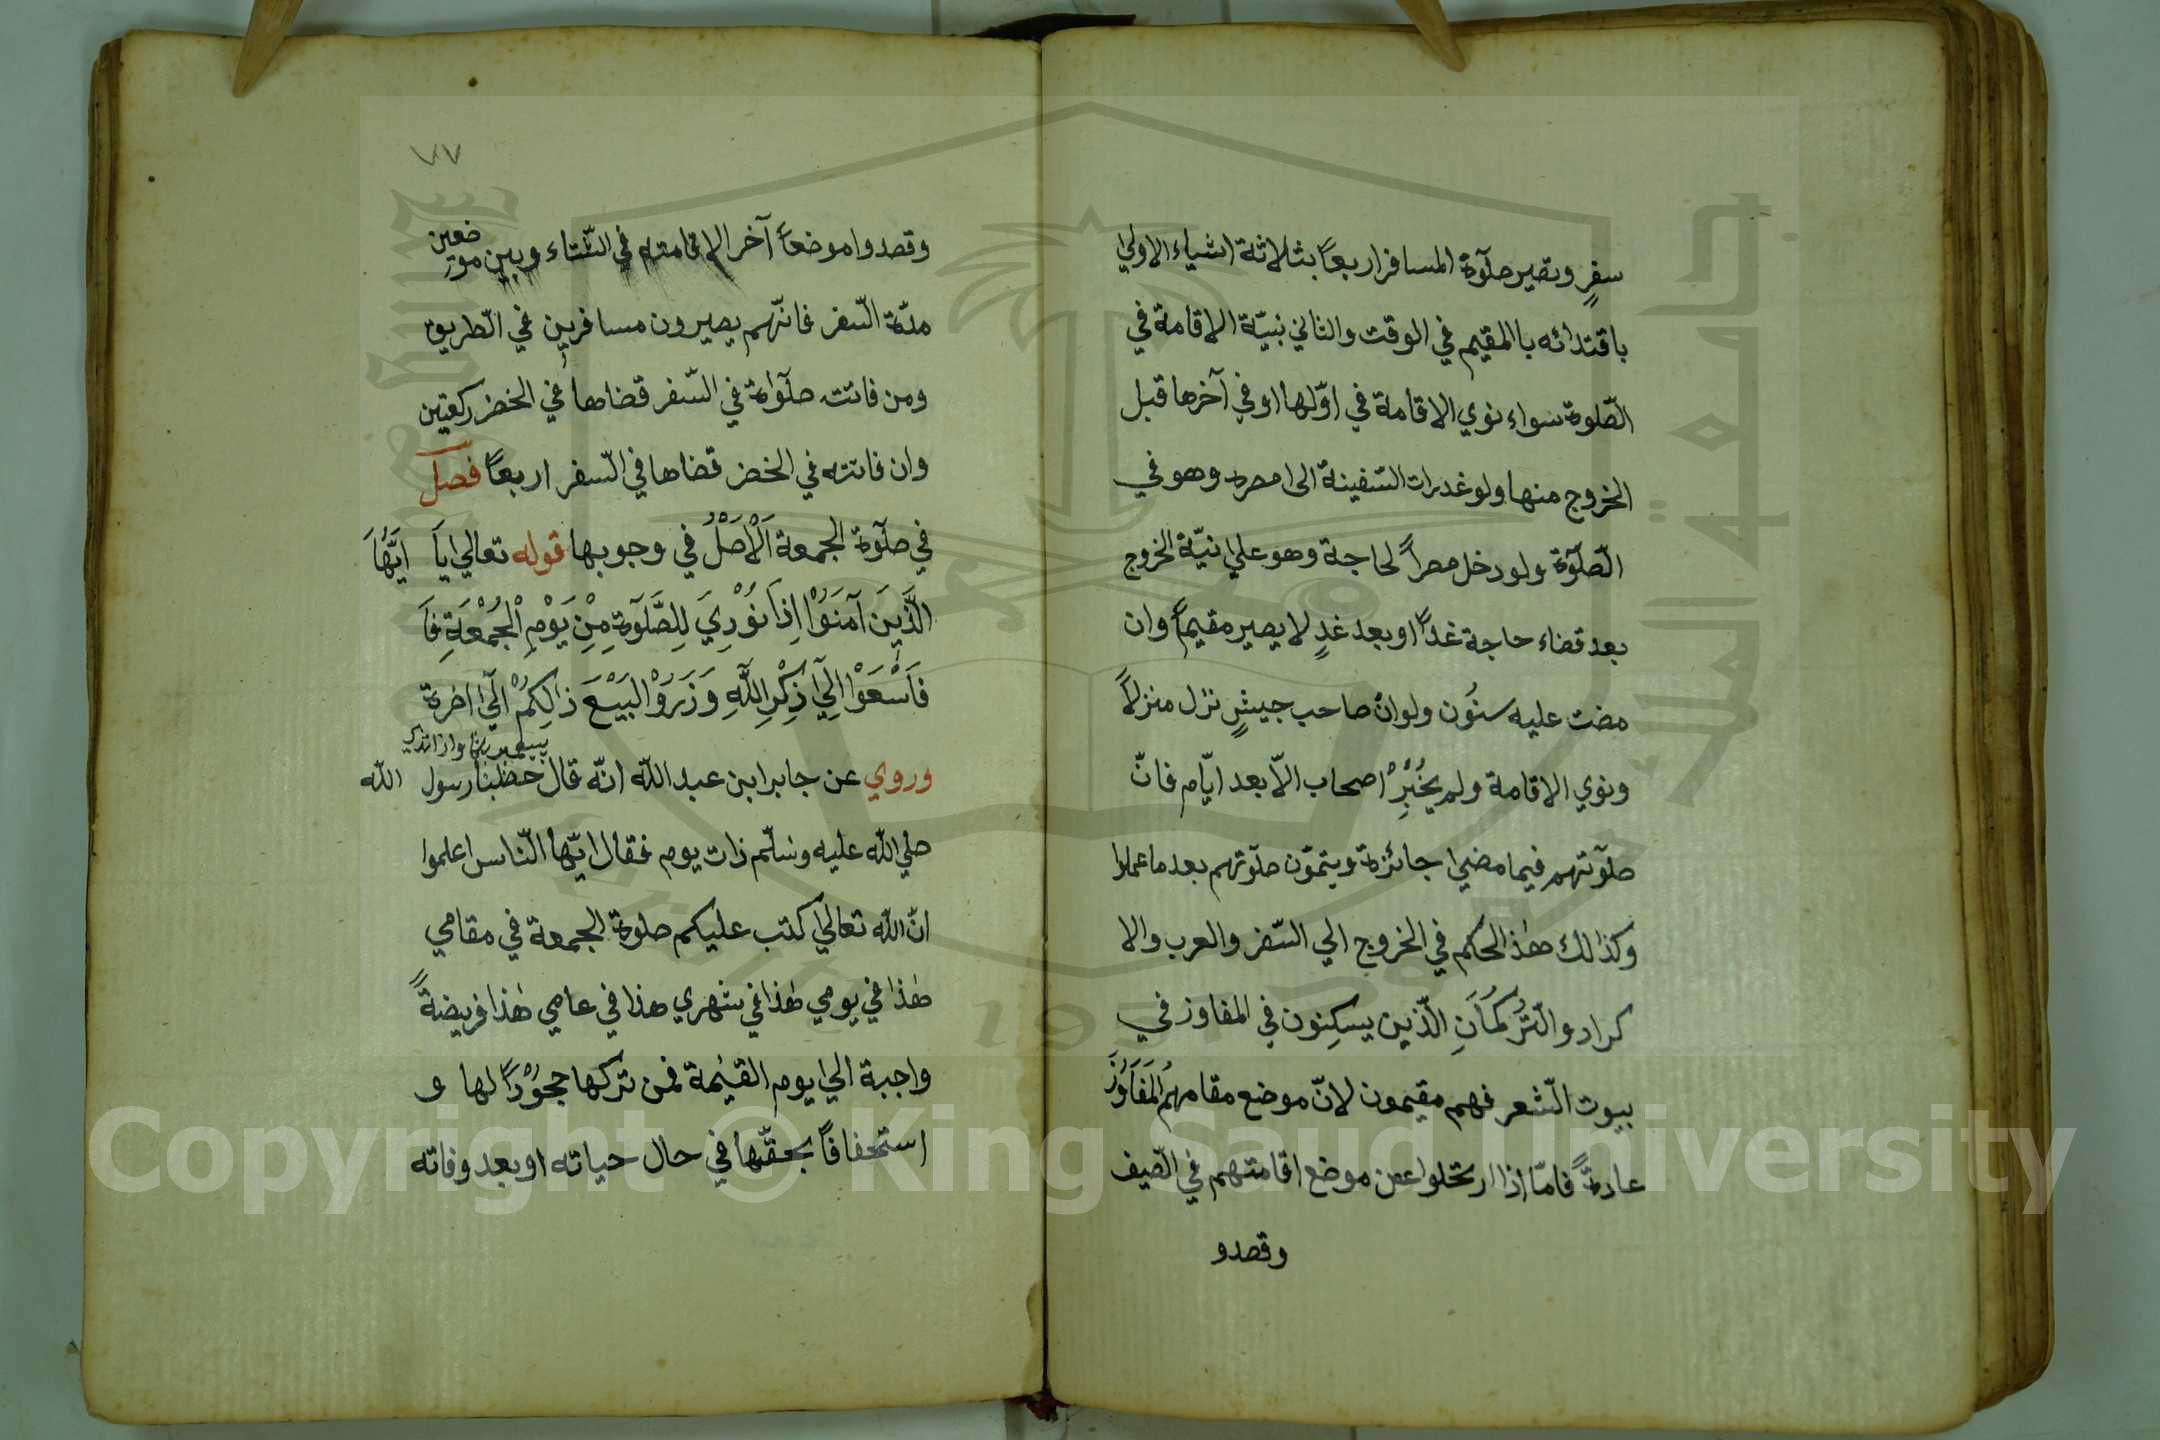 سفرٍ وتصير صلٓوة المسافر اربعاً بثلاثة اشياء الاولي
باقتدائه باالمقيم في الوقت والثاني نيّة الاقامة في
الصّلوة سواء نوي الاقامة في اوّلها او في آخرها قبل
الخروج منها ولو غدرات السّفينة الى امصره وهو في
الصّلٓوة ولو دخل مصراً لحاجة وهو علي انيّة الخروج
بعد قضاء حاجة غداً او بعد غدٍ لا يصير مقيماً وان
مضت عليه سنُون ولو انّ صاحب جيشٍ نزل منزلاً
ونوي الاقامة ولم يخُبِرْ اصحاب الاّ بعد ايّام فانّ
صلٓوتهم فيما مضيا جائزة ويتموّن صلٓوتهم بعد ما عملوا
وكذالك هٰذ الحكم في الخروج الي السّفر والعرب والا
كراد والتّرُكمَاَنِ الّذين يسكِنون في المفاوز في
بيوت الشّعر فهم مقيمون لانّ موضع مقامهمُ المَفَاَوُزَ
عادةً فامّا اذا ارتحلوا عن موضع اقامتهم في الصّيف
وقصدو
٧٧
وقصدوا موضعاً آخر الاقامته في الشّتاء وبين موضعين
مدّة السّفر فانّهم يصيرون مسافرين في الطّريق
ومن فاتته صلٓواة في السّفر قضاها في الخضر ركعتين
وان فاتته في الخضر قضاها في السّفر اربعاً فصل
في صلٓوة الجمعة اَلْاَصَلُ في وجوبها قوله تعالي ياَ ايَّهُاَ
الَّذِينَ آمَنَوُا اِذاَ نوُدِيَ لِلصَّلٓوةِ مِنْ يَوْمِ الْجُمُعَةِ فَا
فَاَسْعَوْا اِلَيٓ ذِكْرِ اللّٰهِ وَزَرَوُ الْبَيْعَ ذالِكُمْ الٓيٰ اخرة
وروي عن جابر ابن عبد اللّه انّه قال خطبنا رسول اللّه
صلي اللّه عليه وسلّم ذات يوم فقال ايّها النّاس اعلموا
انّ اللّه تعالي كتب عليكم صلوة الجمعة في مقامي
هٰذا في يومي هٰذا في شهري هذا في عامي هٰذا فريضةً
واجبة الي يوم القيٰمة فمن تركها جحوُداً لها و
استخفافاً بحقّها في حال حياته او بعد وفاته
جامعة الملك سعود
1957
Copyright © King Saud University